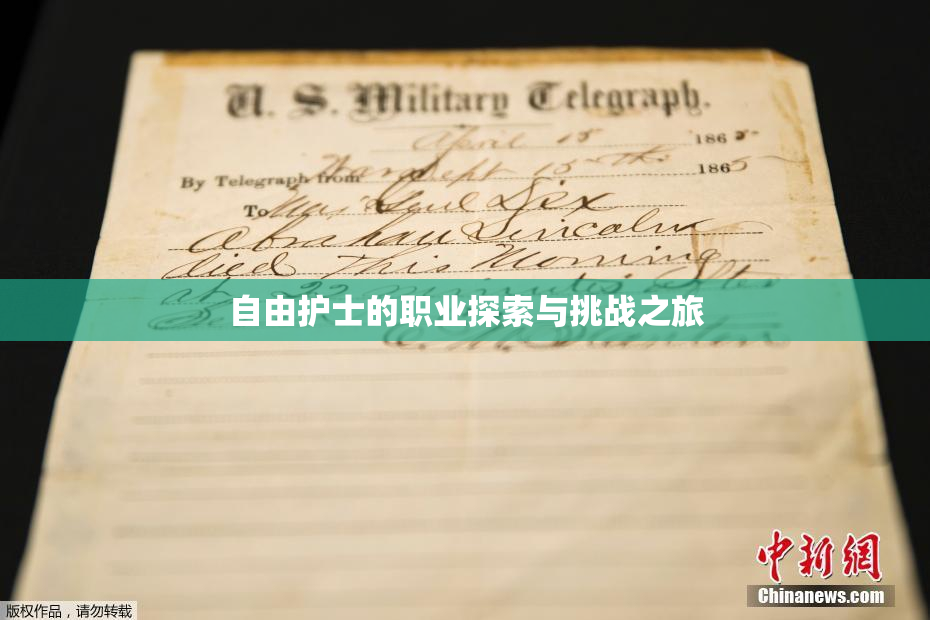 U. S. Military Telegraph.
April 15 1865
By Telegraph from War Dept 15th 1865
To Maj Genl Dix
Abraham Lincoln
died This Morning
at 22 minutes after
自由护士的职业探索与挑战之旅
Stanton
中新网
Chinanews.com
版权作品，请勿转载